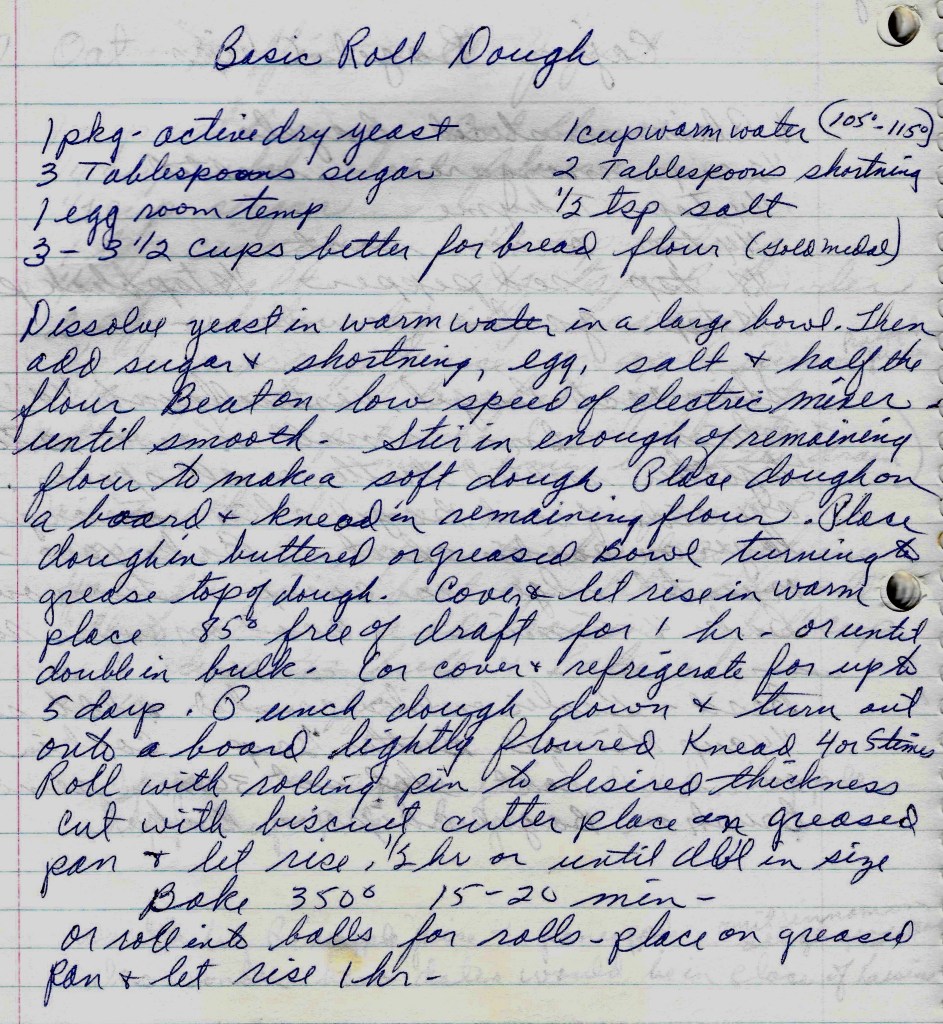 Basic Roll Dough
1 pkg - active dry yeast 1 cup warm water (105° - 115°)
3 Tablespoons sugar 2 Tablespoons shortning
1 egg room temp 1/2 tsp salt
3 - 3 1/2 cups better for bread flour (Gold medal)
Dissolve yeast in warm water in a large bowl. Then
add sugar & shortning, egg, salt & half the
flour Beat on low speed of electric mixer
until smooth - Stir in enough of remaining
flour to make a soft dough Place dough on
a board & knead in remaining flour. Place
dough in buttered or greased Bowl turning to
grease top of dough. Cover & let rise in warm
place 85° free of draft for 1 hr - or until
double in bulk - (or cover & refrigerate for up to
5 days. Punch dough down & turn out
onto a board lightly floured Knead 4 or 5 times
Roll with rolling pin to desired thickness
cut with biscuit cutter place on greased
pan & let rise 1/2 hr or until dbl in size
Bake 350° 15-20 min -
or roll into balls for rolls - place on greased
pan & let rise 1 hr -